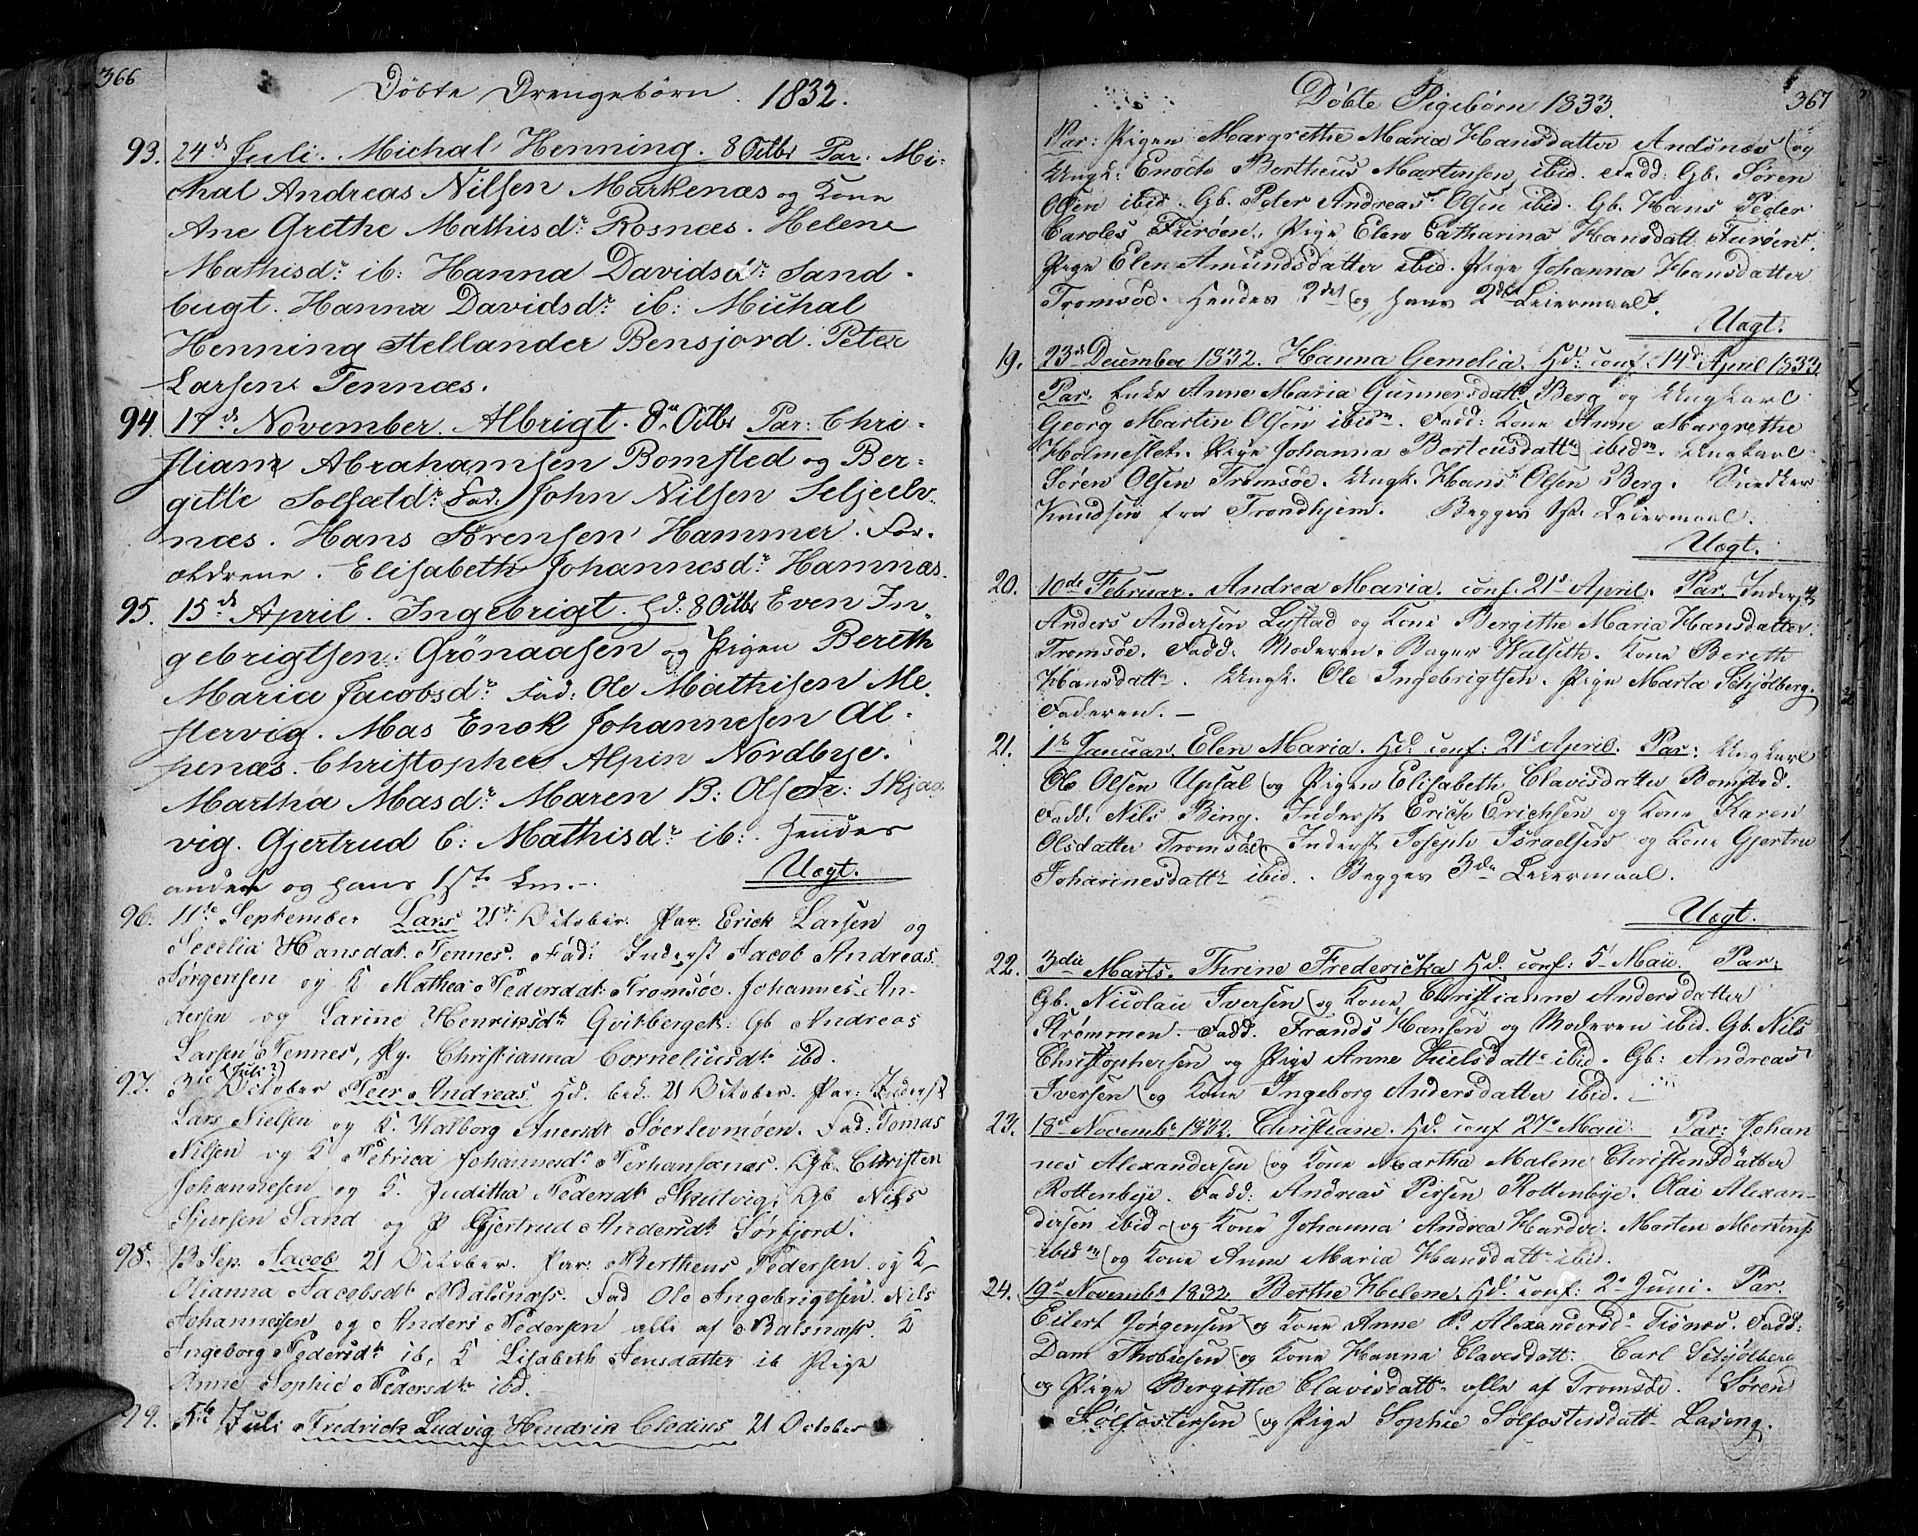 366
Döbte Drengebörn. 1832.
93. 24d Juli. Michal Henning. 8 Octbr Par: Mi-
chal Andreas Nilsen Markenæs og Kone
Ane Grethe Mathisdr Rosnæs. Helene
Mathisdr ib: Hanna Davidsdr Sand-
bugt. Hanna Davidsdr ib: Michal
Henning Hellander Bensjord. Peter
Larsen Tennæs.
94. 17d November. Albrigt. 8 Octbr Par: Chri-
stian Abrahamsen Bomsted og Ber-
gitte Solfældr Fad. John Nilsen Seljeelv
næs. Hans Sörensen Hammer. For-
ældrene. Elisabeth Johannesdr Hamnæs.
95. 15d April. Ingebrigt. Hd: 8 Octbr Even In-
gebrigtsen. Grönaasen og Pigen Bereth
Maria Jacobsdr Fad: Ole Mathisen Me-
stervig. Mas Enok Johannesen Al-
penæs. Christopher Alpin Nordbye.
Martha Masdr Maren B: Olsdr: Skjaa-
vig. Gjertrud C: Mathisdr ib: Hendes
andet og hans 1ste Lm.
Uægt.
96. 11te September Lars 21d October. Par. Erick Larsen og
Secelia Hansdat. Tennes. Fad: Inderst Jacob Andreas
Jörgensen og K Mathea Pedersdat: Tromsöe. Johannes An-
dersen og Sarine Henriksdt Qvitberget: Gb Andreas
Larsen Tennes, Pg. Christianna Corneliusdt ibd.
97. 3die (Juli?) October Peer Andreas. Hd. bek. 21 October. Par: Inderst
Lars Nielsen og K. Walborg Andersdt Söerlevmöen. Fad: Tomas
Nilsen og K Petrica Johannesdt Perhansænæs. Gb. Christen
Johannesen og K. Juditha Pedersdt Skutvig: Gb Nils
Siursen Sand og P Gjertrud Andersdt Sörfjord.
98. 13 Sep. Jacob 21 October. Par: Bertheus Pedersen og K
Olianna Jacobsdt Balsnæss. Fad Ole Ingebrigtsen. Nils
Johannessen og Anders Pedersen alle af Balsnæss. K
Ingeborg Pedersdt ib, K Lisabeth Jensdatter ib Pige
Anne Sophie Pedersdt ibd.
99. 5te Juli Fredrick Ludvig Hendrik Clodius 21 October
367
Döbte Pigebörn 1833.
Par: Pigen Margrethe Maria Hansdatter Andsnæs og
Ungk: Enoch Bertheus Martinsen ibid. Fadd: Gb. Sören
Olsen ibid. Gb. Peter Andreas Olsen ibid. Gb. Hans Peder
Caroles Furöen. Pige Elen Catharina Hansdatt. Furöen.
Pige Elen Amundsdatter ibid. Pige Johanna Hansdatter
Tromsöe. Hendes 2det og hans 2det Leiermaal.
Uægt.
19. 23d December 1832. Hanna Gemelia. Hd: conf. 14d April 1833.
Par. Enke Anne Maria Gunnersdatt Berg og Ungkarl
Georg Martin Olsen ibidm. Fadd: Kone Anne Margrethe
Holmeslet. Pige Johanna Berteusdattr ibidm. Ungkarl
Sören Olsen Tromsöe. Ungk. Hans Olsen Berg. Snedker
Knudsen fra Trondhjem. Begges 1ste Leiermaal.
Uægt.
20. 10de Februar. Andrea Maria. conf. 21d April. Par. Inderst
Anders Andersen Lystad og Kone Bergithe Maria Hansdatter
Tromsöe. Fadd: Moderen. Bager Halseth. Kone Bereth
Hansdattr. Ungk. Ole Ingebrigtsen. Pige Marta Schjölberg.
Faderen. —
21. 1te Januar. Elen Maria. Hd: conf: 21d April. Par: Ungkarl
Ole Olsen Upsal og Pigen Elisabeth Clavisdatter Bomsted.
Fadd. Nils Bing. Inderst Erich Erichsen og Kone Karen
Olsdatter Tromsöe. Inderst Joseph Israelsen og Kone Gjertru
Johannesdattr ibid. Begges 3die Leiermaal.
Uægt.
22. 3die Marts. Thrine Fredericka Hd. conf: 5 Maii. Par:
Gb. Nicolai Iversen og Kone Christianne Andersdatter
Strömmen. Fadd. Frands Hansen og Moderen ibid. Gb. Nils
Christophersen og Pige Anne Nielsdattr ibid. Gb: Andreas
Iversen og Kone Ingeborg Andersdatter ibid. —
23. 18d Novembr 1832. Christiane. Hd. conf 27d Maii. Par: Johan
nes Alexandersen og Kone Martha Malene Christensdatter
Rottenbye. Fadd: Andreas Persen Rottenbye. Olai Alexan-
dersen ibid og Kone Johanna Andrea Hardve. Morten Mortens
ibidm og Kone Anne Maria Hansdattr ibid.
24. 19d Novembr 1832. Berthe Helene. Hd. conf: 2d Juni. Par.
Eilert Jörgensen og Kone Anne P. Alexandersdr Tisnæs. Fadd:
Dam Thobiesen og Kone Hanna Clavesdatt: Carl Schjölberg
og Pige Bergithe Clavisdattr alle af Tromsöe. Sören
Solfostersen og Pige Sophie Solfostersdattr Laseng.